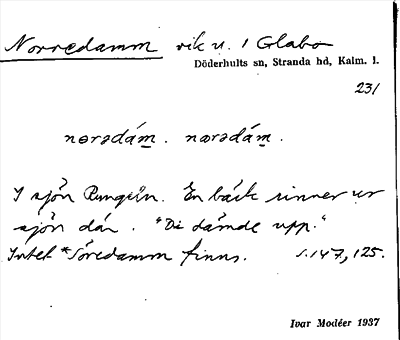 Norredamm vik u. 1 Glabo
Döderhults sn, Stranda hd, Kalm. l.
231
nɵrədám. nɶrədám.
I sjön Rungeln. En bäck rinner ur
sjön där. "Di dämde upp."
Intet *Söredamm finns. s. 147, 125.
Ivar Modéer 1937